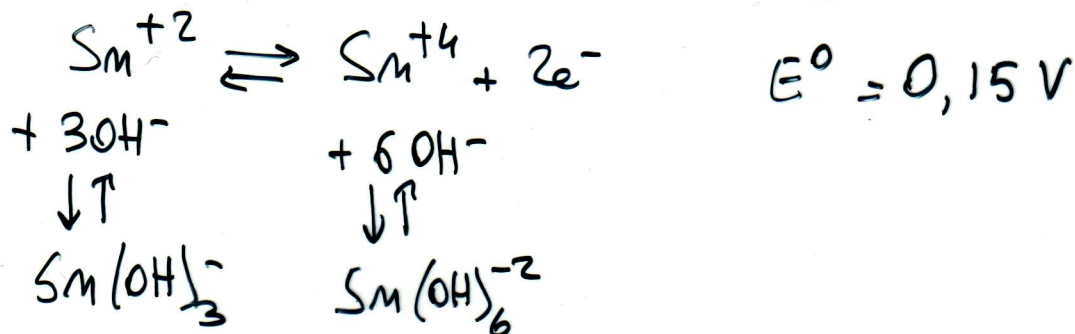 Sn⁺² ⇌ Sn⁺⁴ + 2e⁻ E⁰ = 0,15 V
+ 3OH⁻ + 6 OH⁻
↓↑ ↓↑
Sn(OH)₃⁻ Sn(OH)₆⁻²